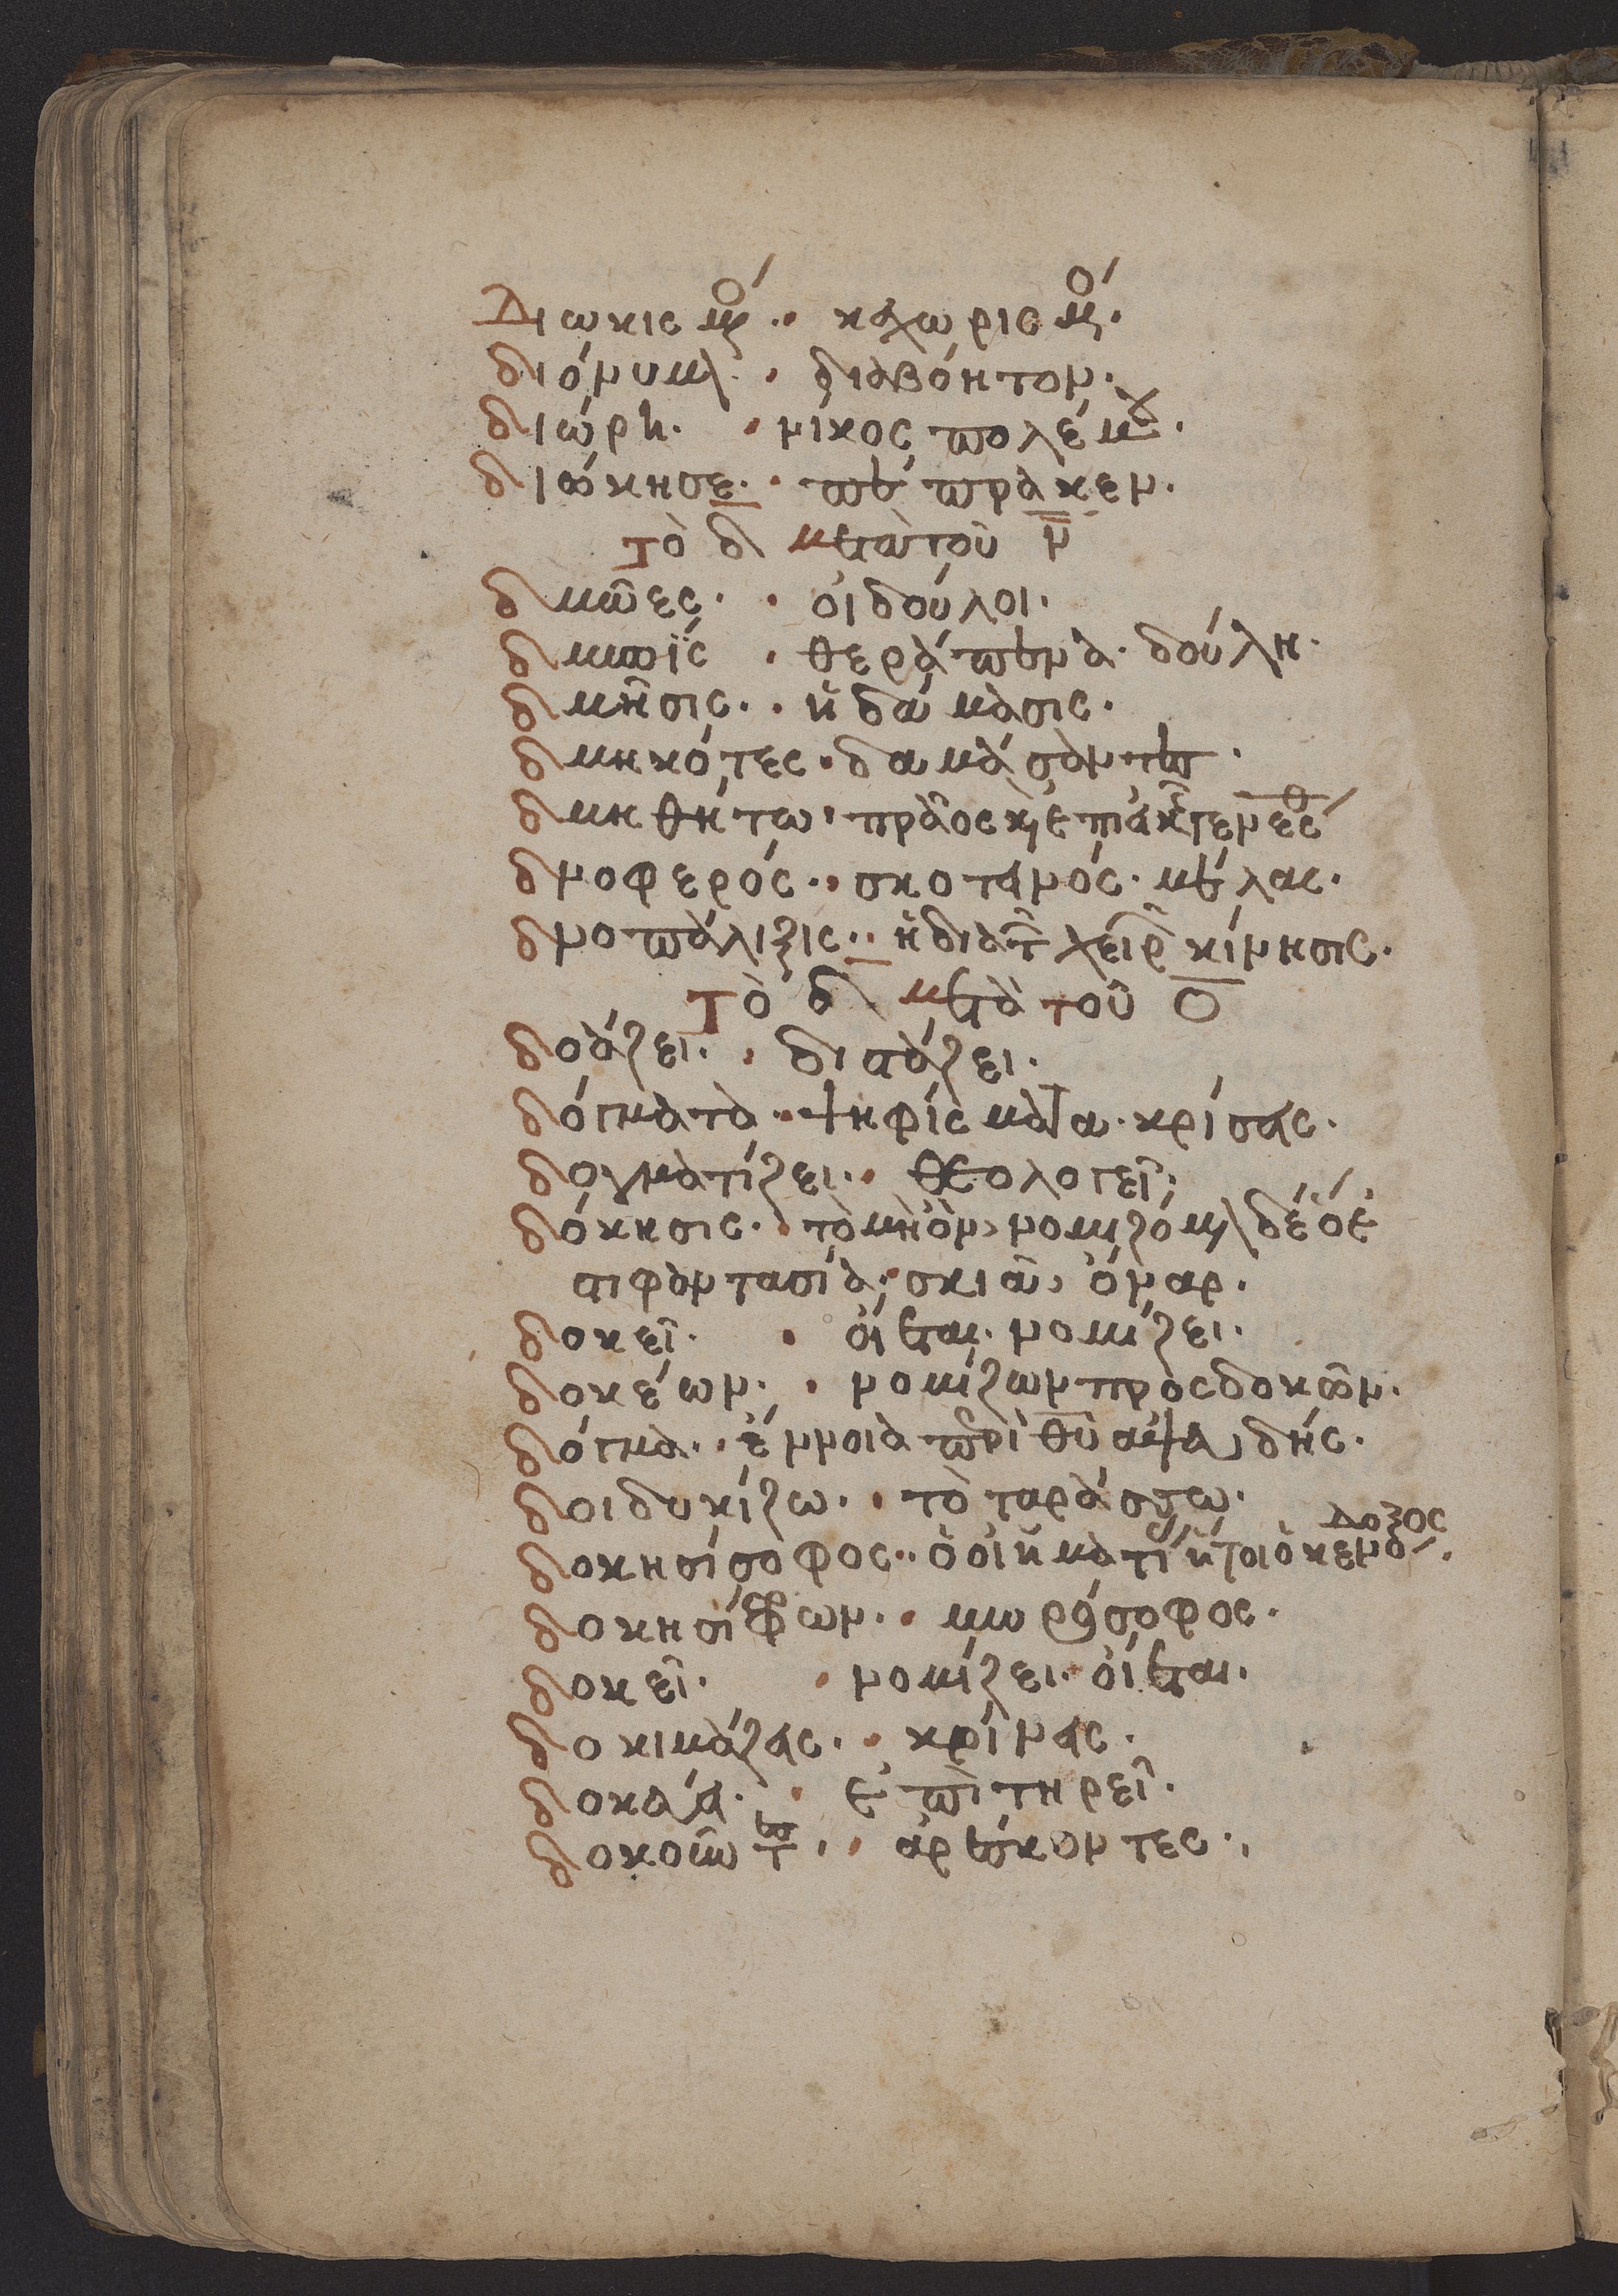 Διωκισμός· κεχωρισμός·
διώνυμον· διαβόητον·
διώρη· νίκος πολέμου·
διώκησε· πεπράχεν·
τὸ δ μετὰ τοῦ ν
δμῶες· οἱ δούλοι·
δμωΐς· θεράπενα· δούλη·
δμῆσις· ἡ δάμασις·
δμηκότες· δαμάσαντες·
δμηθήτω· πρᾶος καὶ
δνοφερός· σκοτεινός· μέλας·
δνοπάλιξις· ἡ διὰ τῶν χειρῶν κίνησις·
τὸ δ μετὰ τοῦ ο
δοάζει· διστάζει·
δόγματα· ψηφίσματα· κρίσεις·
δογματίζει· θεολογεῖ·
δόκησις· τὸ μὴ ὂν, νομιζόμενον δέ·
φαντασία· σκιά, ὄναρ·
δοκεῖ· οἴεται· νομίζει·
δοκέων· νομίζων προσδοκῶν·
δόγμα· ἔννοια περὶ θυ ἀψευδής·
δοιδυκίζω· τὸ ταράσσω·
δοκησίσοφος· κενόδοξος
δοκησίφρων· μωρόσοφος·
δοκεῖ· νομίζει· οἴεται·
δοκιμάζας· κρίνας·
δοκεύει· ἐπιτηρεῖ·
δοκοῦντες· ἀρέσκοντες·